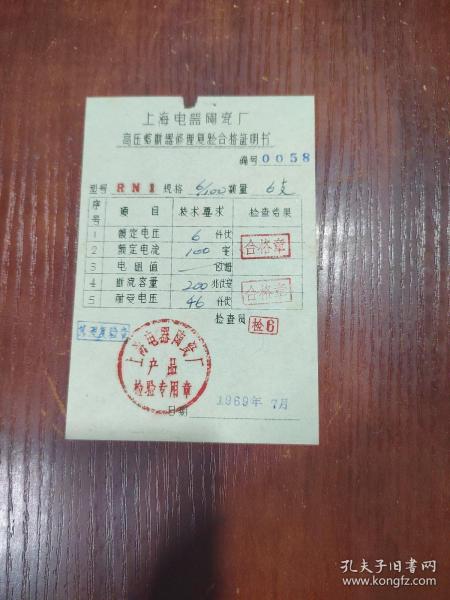 上海电器陶瓷厂
高压熔断器修理复验合格证明书
编号 0058
型号 RN1 规格 6/100 数量 6支
序号 项目 技术要求 检查结果
1 额定电压 6 仟伏
2 额定电流 100 安
合格章
3 电阻值 — 欧姆
4 断流容量 200 兆伏安
合格章
5 耐受电压 46 仟伏
检查员 检6
上海电器陶瓷厂
产品
检验专用章
日期 1969年 7月
孔夫子旧书网
www.kongfz.com